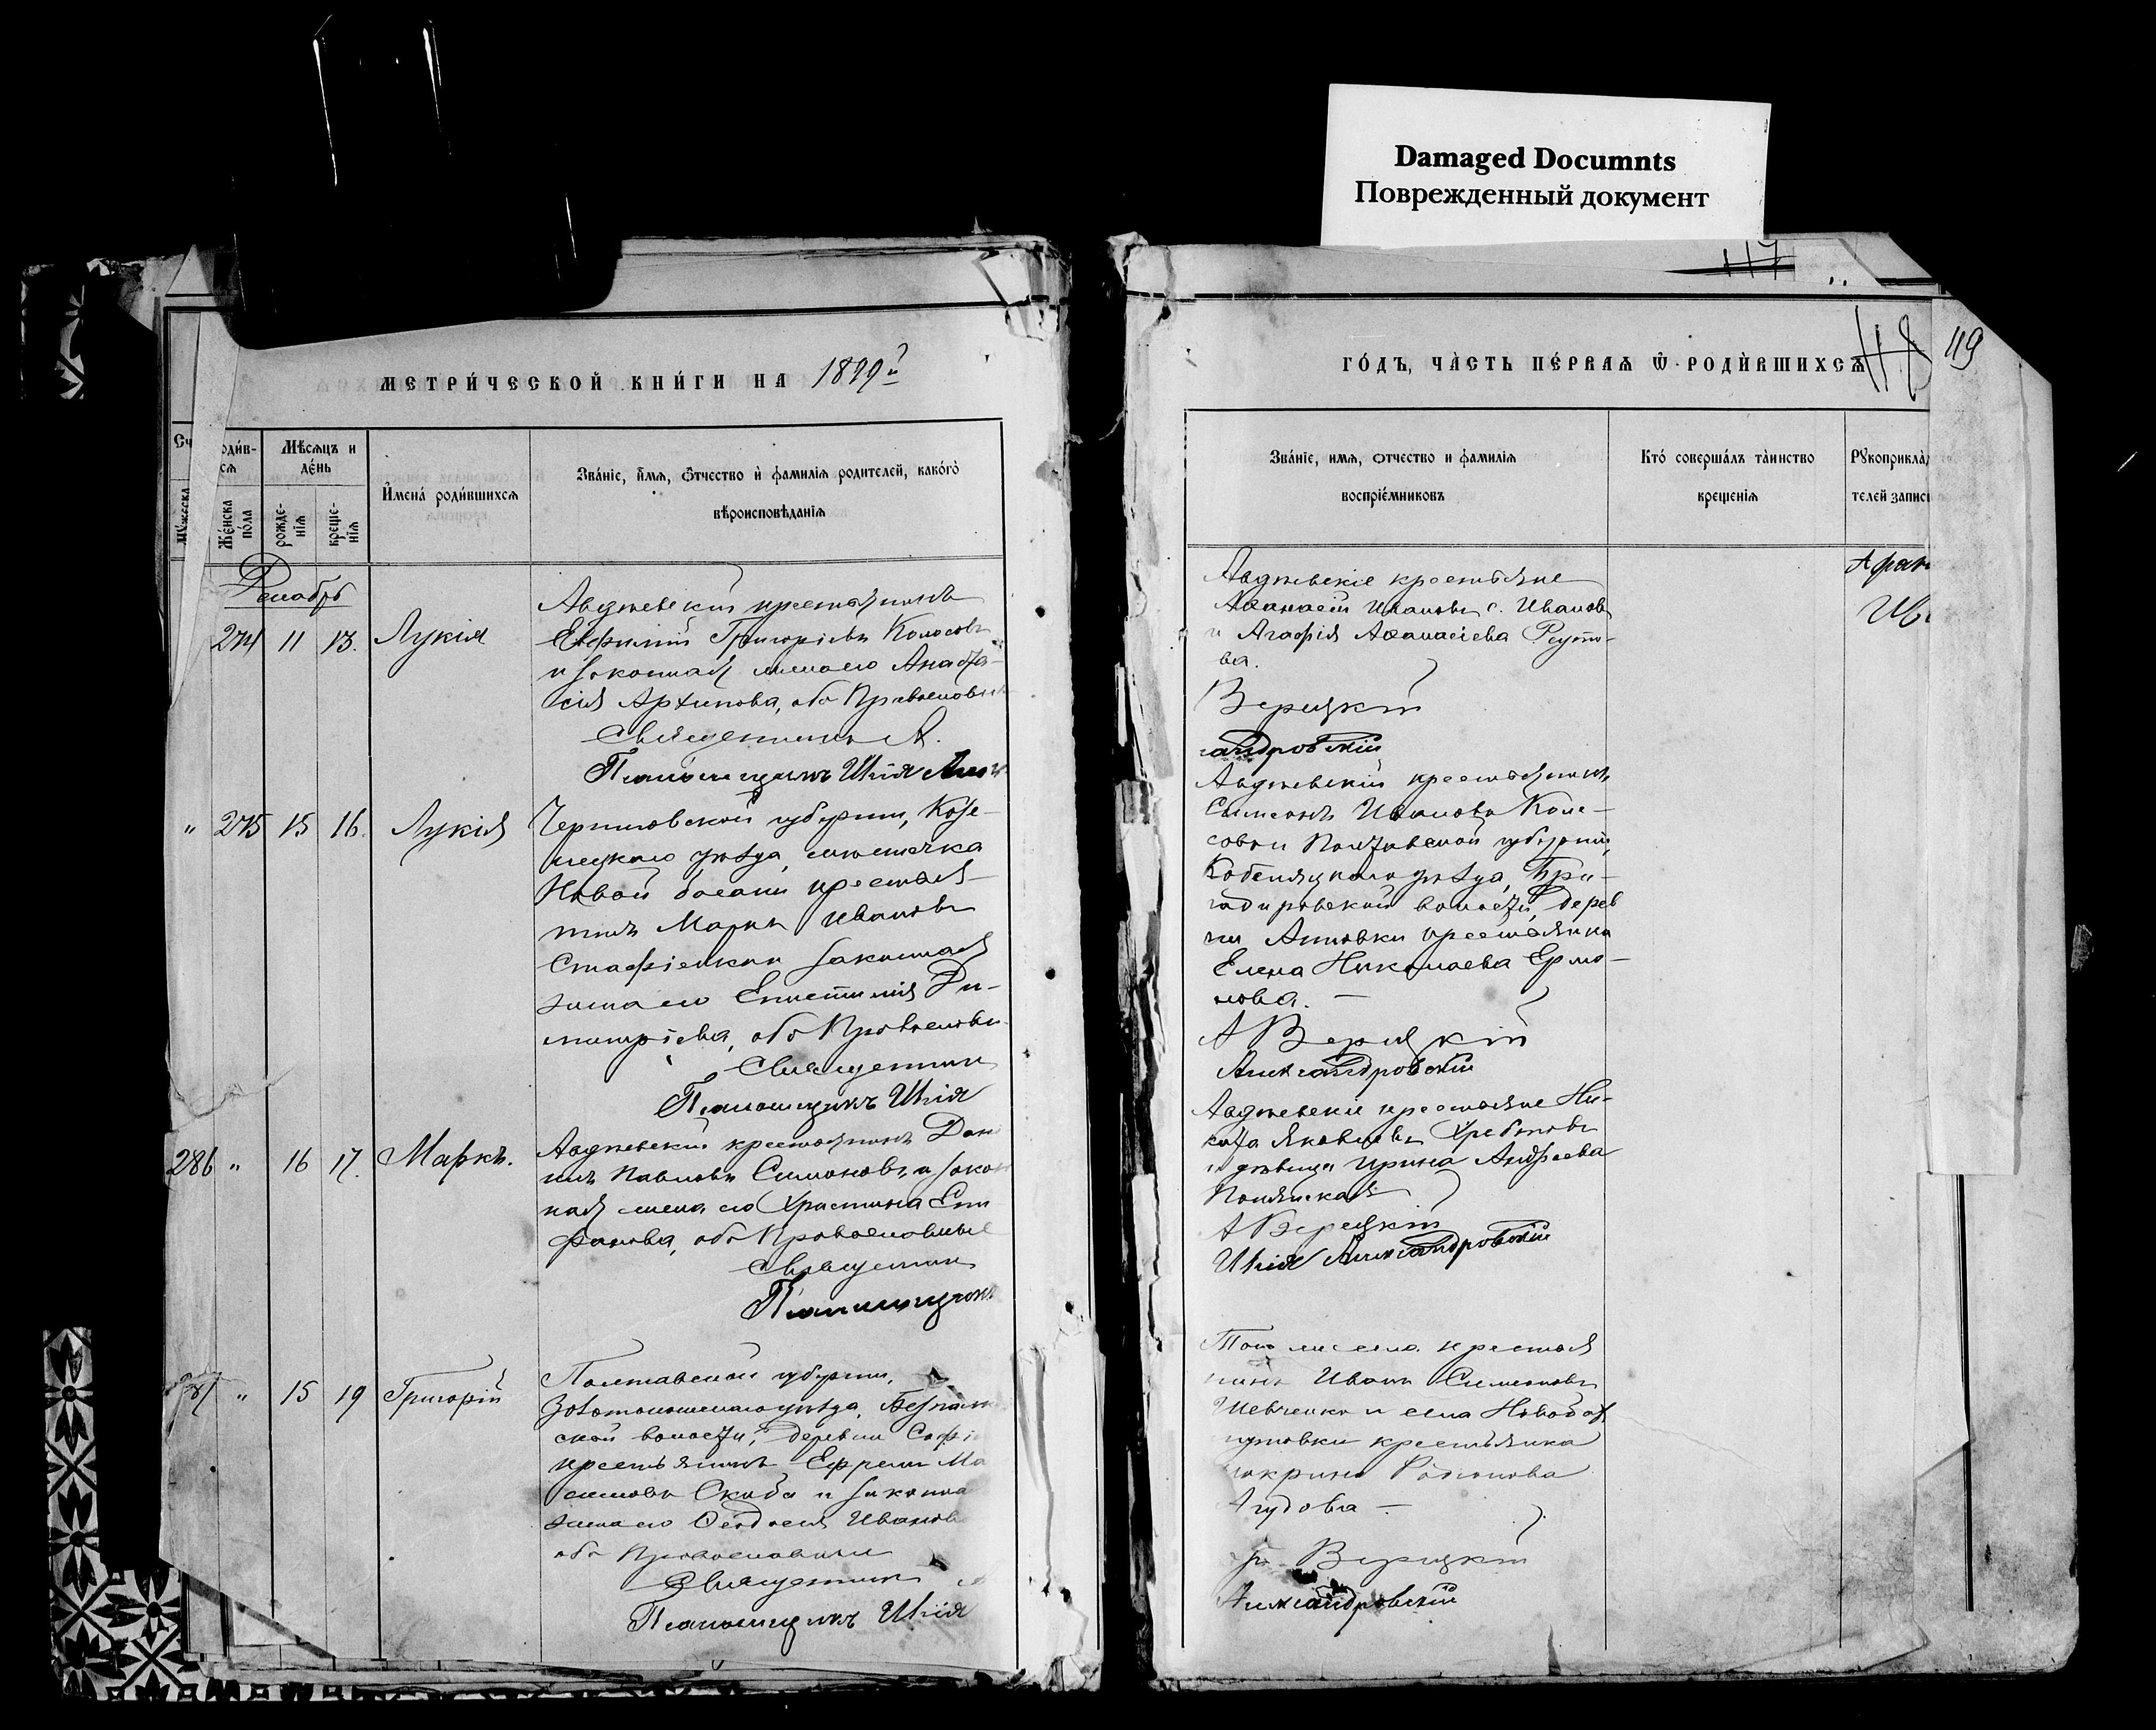 Damaged Documnts
Поврежденный документ
117
118
119
МЕТРИ́ЧЕСКОЙ КНИ́ГИ НА 1899
ГО́ДЪ, ЧА̀СТЬ ПЕ́РВАѦ Ѿ РОДИ́ВШИХСѦ
Мѣ́сѧцъ и де́нь
Же́нска по́ла
рожде-нїѧ
креще-нїѧ
И҆мена̀ роди́вшихсѧ
Зва́нїе, и҆́мѧ, ѻ҆́тчество и҆ фамилїѧ родителей, како́гѡ
вѣроисповѣ́данїѧ
Зва́нїе, имѧ, ѻтчество и фамилїѧ
воспрїе́мниковъ
Кто̀ соверша́лъ та̀инство
креще́нїѧ
Рꙋкоприкла
телей запис
Декабрь
274 11 13. Лукія
Авдѣевскій крестьянинъ
Евфимій Григорьевъ Колосовъ
и законная жена его Анаста-
сія Архипова, оба Православн
Священникъ А.
Авдѣевскіе крестьяне
Аѳанасій Ивановъ с. Ивановъ
и Агафія Аѳанасіева Реуто-
ва.
Верцкій
андровскій
" 275 15 16. Лукія
Черниговской губерніи, Козе-
лецкаго уѣзда, мѣстечка
Новой Басани крестья-
нинъ Марко Ивановъ
законная
жена его Епистимія Ди-
митріева, оба Православн
Священникъ
Авдѣевскій крестьянинъ
Симеонъ Ивановъ Коле-
совъ и Полтавской губерніи,
Кобеляцкаго уѣзда, Бри-
гадировской волости, дерев
ни Анновки крестьянка
Елена Николаева Ермо-
лова. —
А Верцкій
Александровскій
286 " 16 17. Маркъ.
Авдѣевскій крестьянинъ Дані
илъ Павловъ Симоновъ и закон
ная жена его Христина Сте
фанова, оба Православные
Священникъ
Авдѣевскіе крестьяне Ни-
кита Яковлевъ Хребтовъ
и дѣвица Ирина Андреева
Полянская
А Верцкій
Александровскій
" 15 19 Григорій
Полтавской губерніи,
Золотоношскаго уѣзда,
ской волости, деревни Софі
крестьянинъ Ефремъ Ма
симовъ Скиба и законна
жена его Ѳеодосія Иванов
оба Православные
Священникъ
Того же села крестья
нинъ Иванъ Симеоновъ
Шевченко и села Новобах
мутовки крестьянка
Агудова —
Верцкій
Александровскій